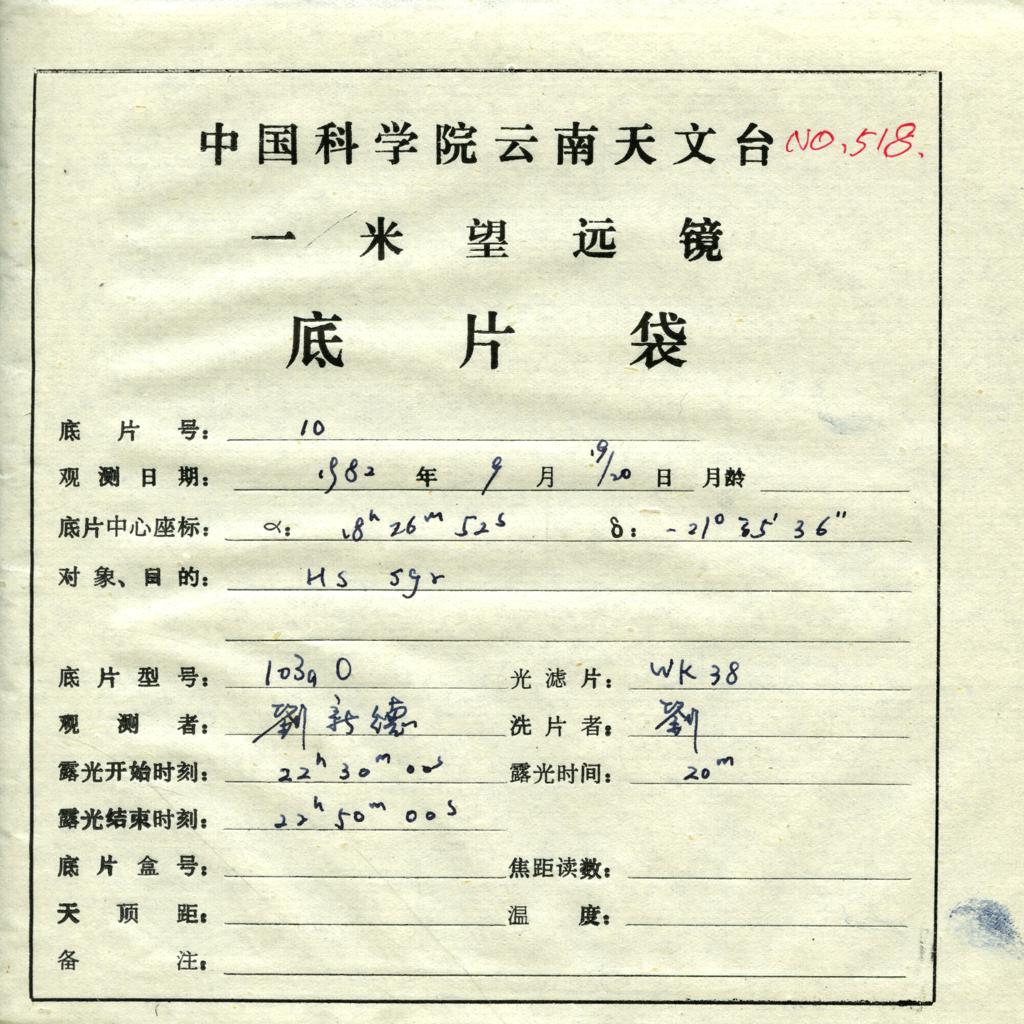 中国科学院云南天文台 NO.518.
一米望远镜
底片袋
底片号： 10
观测日期： 1982 年 9 月 19/20 日 月龄
底片中心座标： α： 18h 26m 52s δ： -21° 35' 36"
对象、目的： HS sgr
底片型号： 103a O 光滤片： WK 38
观测者： 劉新德 洗片者： 劉
露光开始时刻： 22h 30m 00s 露光时间： 20m
露光结束时刻： 22h 50m 00s
底片盒号： 焦距读数：
天顶距： 温度：
备注：